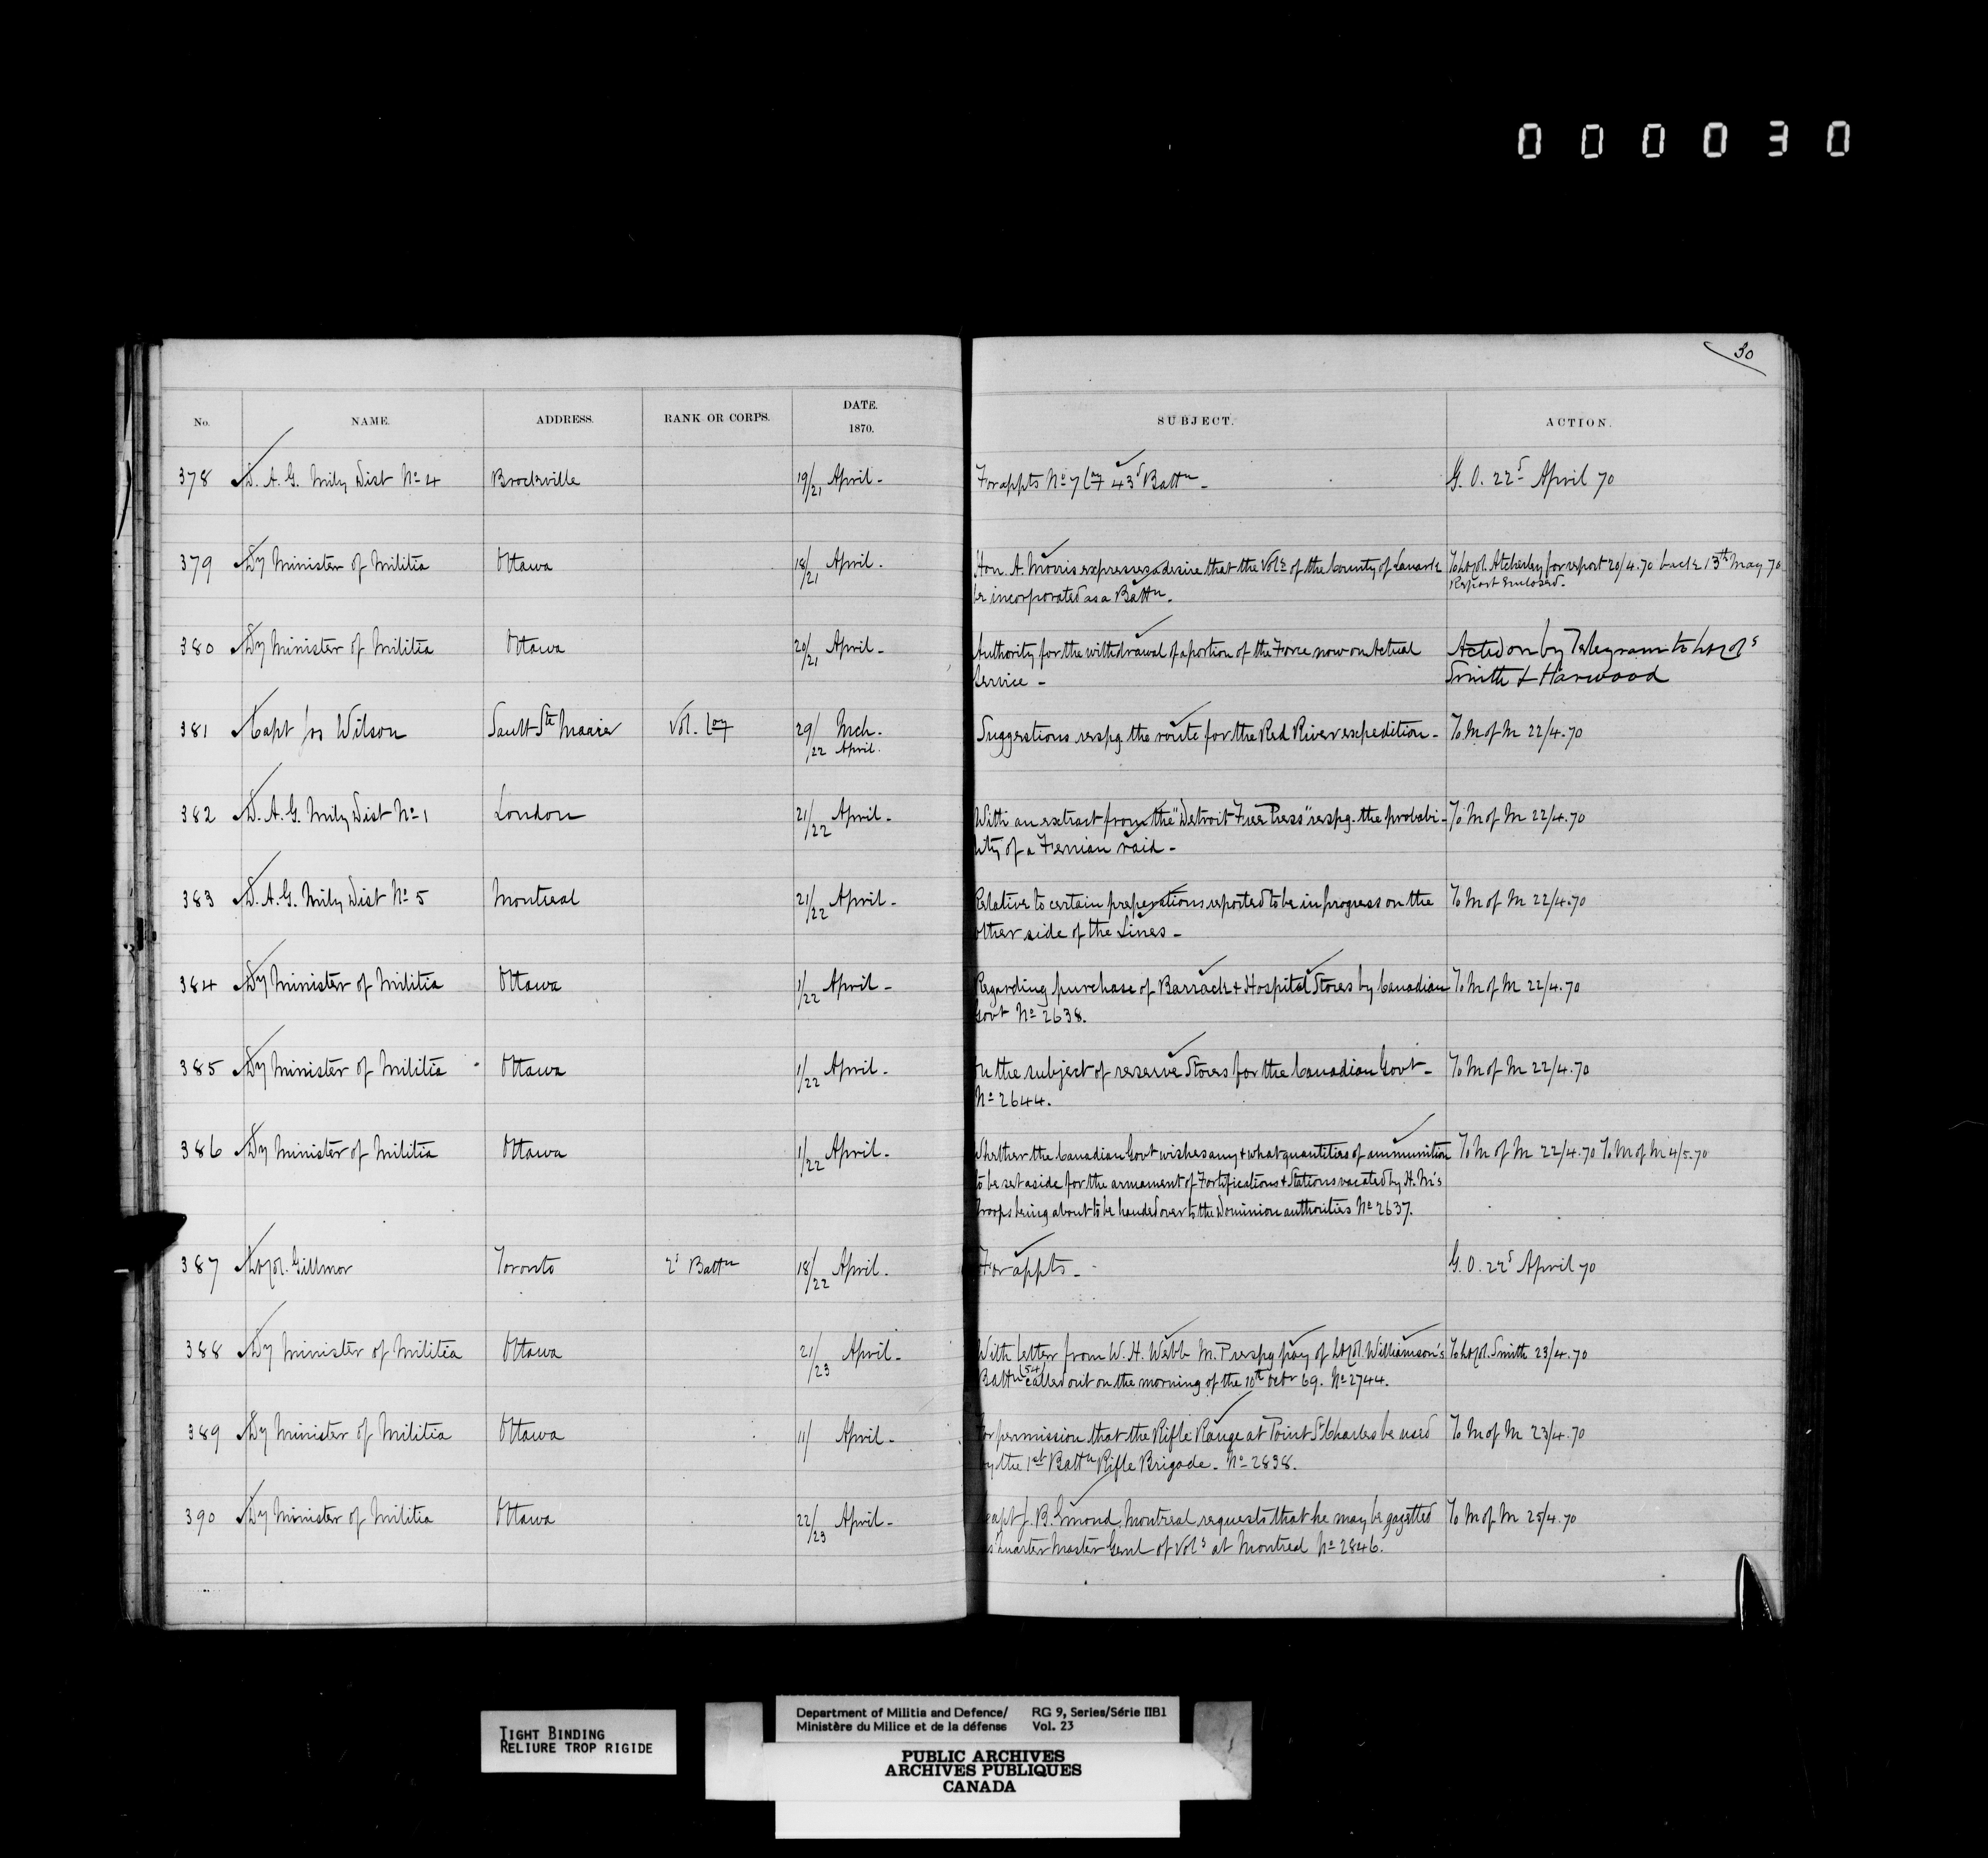 000030
30
No. NAME. ADDRESS. RANK OR CORPS. DATE. 1870. SUBJECT. ACTION.
378 D. A. G. Mily Dist No 4 Brockville 19/21 April - For appts No 7 Coy 43d Battn - G. O. 22d April 70
379 Dy Minister of Militia Ottawa 18/21 April - Hon. A. Morris expresses a desire that the Vols of the County of Lanark To Lt Col. Atcherley for report 20/4.70 back 13th May 70
be incorporated as a Battn. Report enclosed.
380 Dy Minister of Militia Ottawa 20/21 April - Authority for the withdrawal of a portion of the Force now on Actual Acted on by Telegram to Lt Cols
Service - Smith & Harwood
381 Capt Jos Wilson Sault Ste Marie Vol. Coy 29/ Mch - Suggestions respg. the route for the Red River expedition - To M of M 22/4.70
/22 April.
382 D. A. G. Mily Dist No 1 London 21/22 April - With an extract from the "Detroit Free Press" respg. the probabi- To M of M 22/4.70
lity of a Fenian raid -
383 D. A. G. Mily Dist No 5 Montreal 21/22 April - Relative to certain preperations reported to be in progress on the To M of M 22/4.70
other side of the Lines -
384 Dy Minister of Militia Ottawa 1/22 April - Regarding purchase of Barrack & Hospital Stores by Canadian To M of M 22/4.70
Govt No 2638.
385 Dy Minister of Militia Ottawa 1/22 April - On the subject of reserve Stores for the Canadian Govt - To M of M 22/4.70
No 2644.
386 Dy Minister of Militia Ottawa 1/22 April - Whether the Canadian Govt wishes any & what quantities of ammunition To M of M 22/4.70 To M of M 4/5.70
to be set aside for the armament of Fortifications & Stations vacated by H. M's
Troops being about to be handed over to the Dominion authorities No 2637.
387 Lt Col. Gillmor Toronto 2d Battn 18/22 April. For appts - G. O. 22d April 70
388 Dy Minister of Militia Ottawa 21/23 April - With letter from W. H. Webb M. P respg pay of Lt Col. Williamson's To Lt Col. Smith 23/4.70
Battn (54) called out on the morning of the 10th Octr 69. No 2744.
389 Dy Minister of Militia Ottawa 11/ April - For permission that the Rifle Range at Point St Charles be used To M of M 23/4.70
by the 1st Battn Rifle Brigade - No 2838.
390 Dy Minister of Militia Ottawa 22/23 April - Capt J. B. Emond, Montreal requests that he may be gazetted To M of M 25/4.70
as Quarter Master Genl of Vols at Montreal No 2846.
TIGHT BINDING
RELIURE TROP RIGIDE
Department of Militia and Defence/ RG 9, Series/Série IIB1
Ministère du Milice et de la défense Vol. 23
PUBLIC ARCHIVES
ARCHIVES PUBLIQUES
CANADA